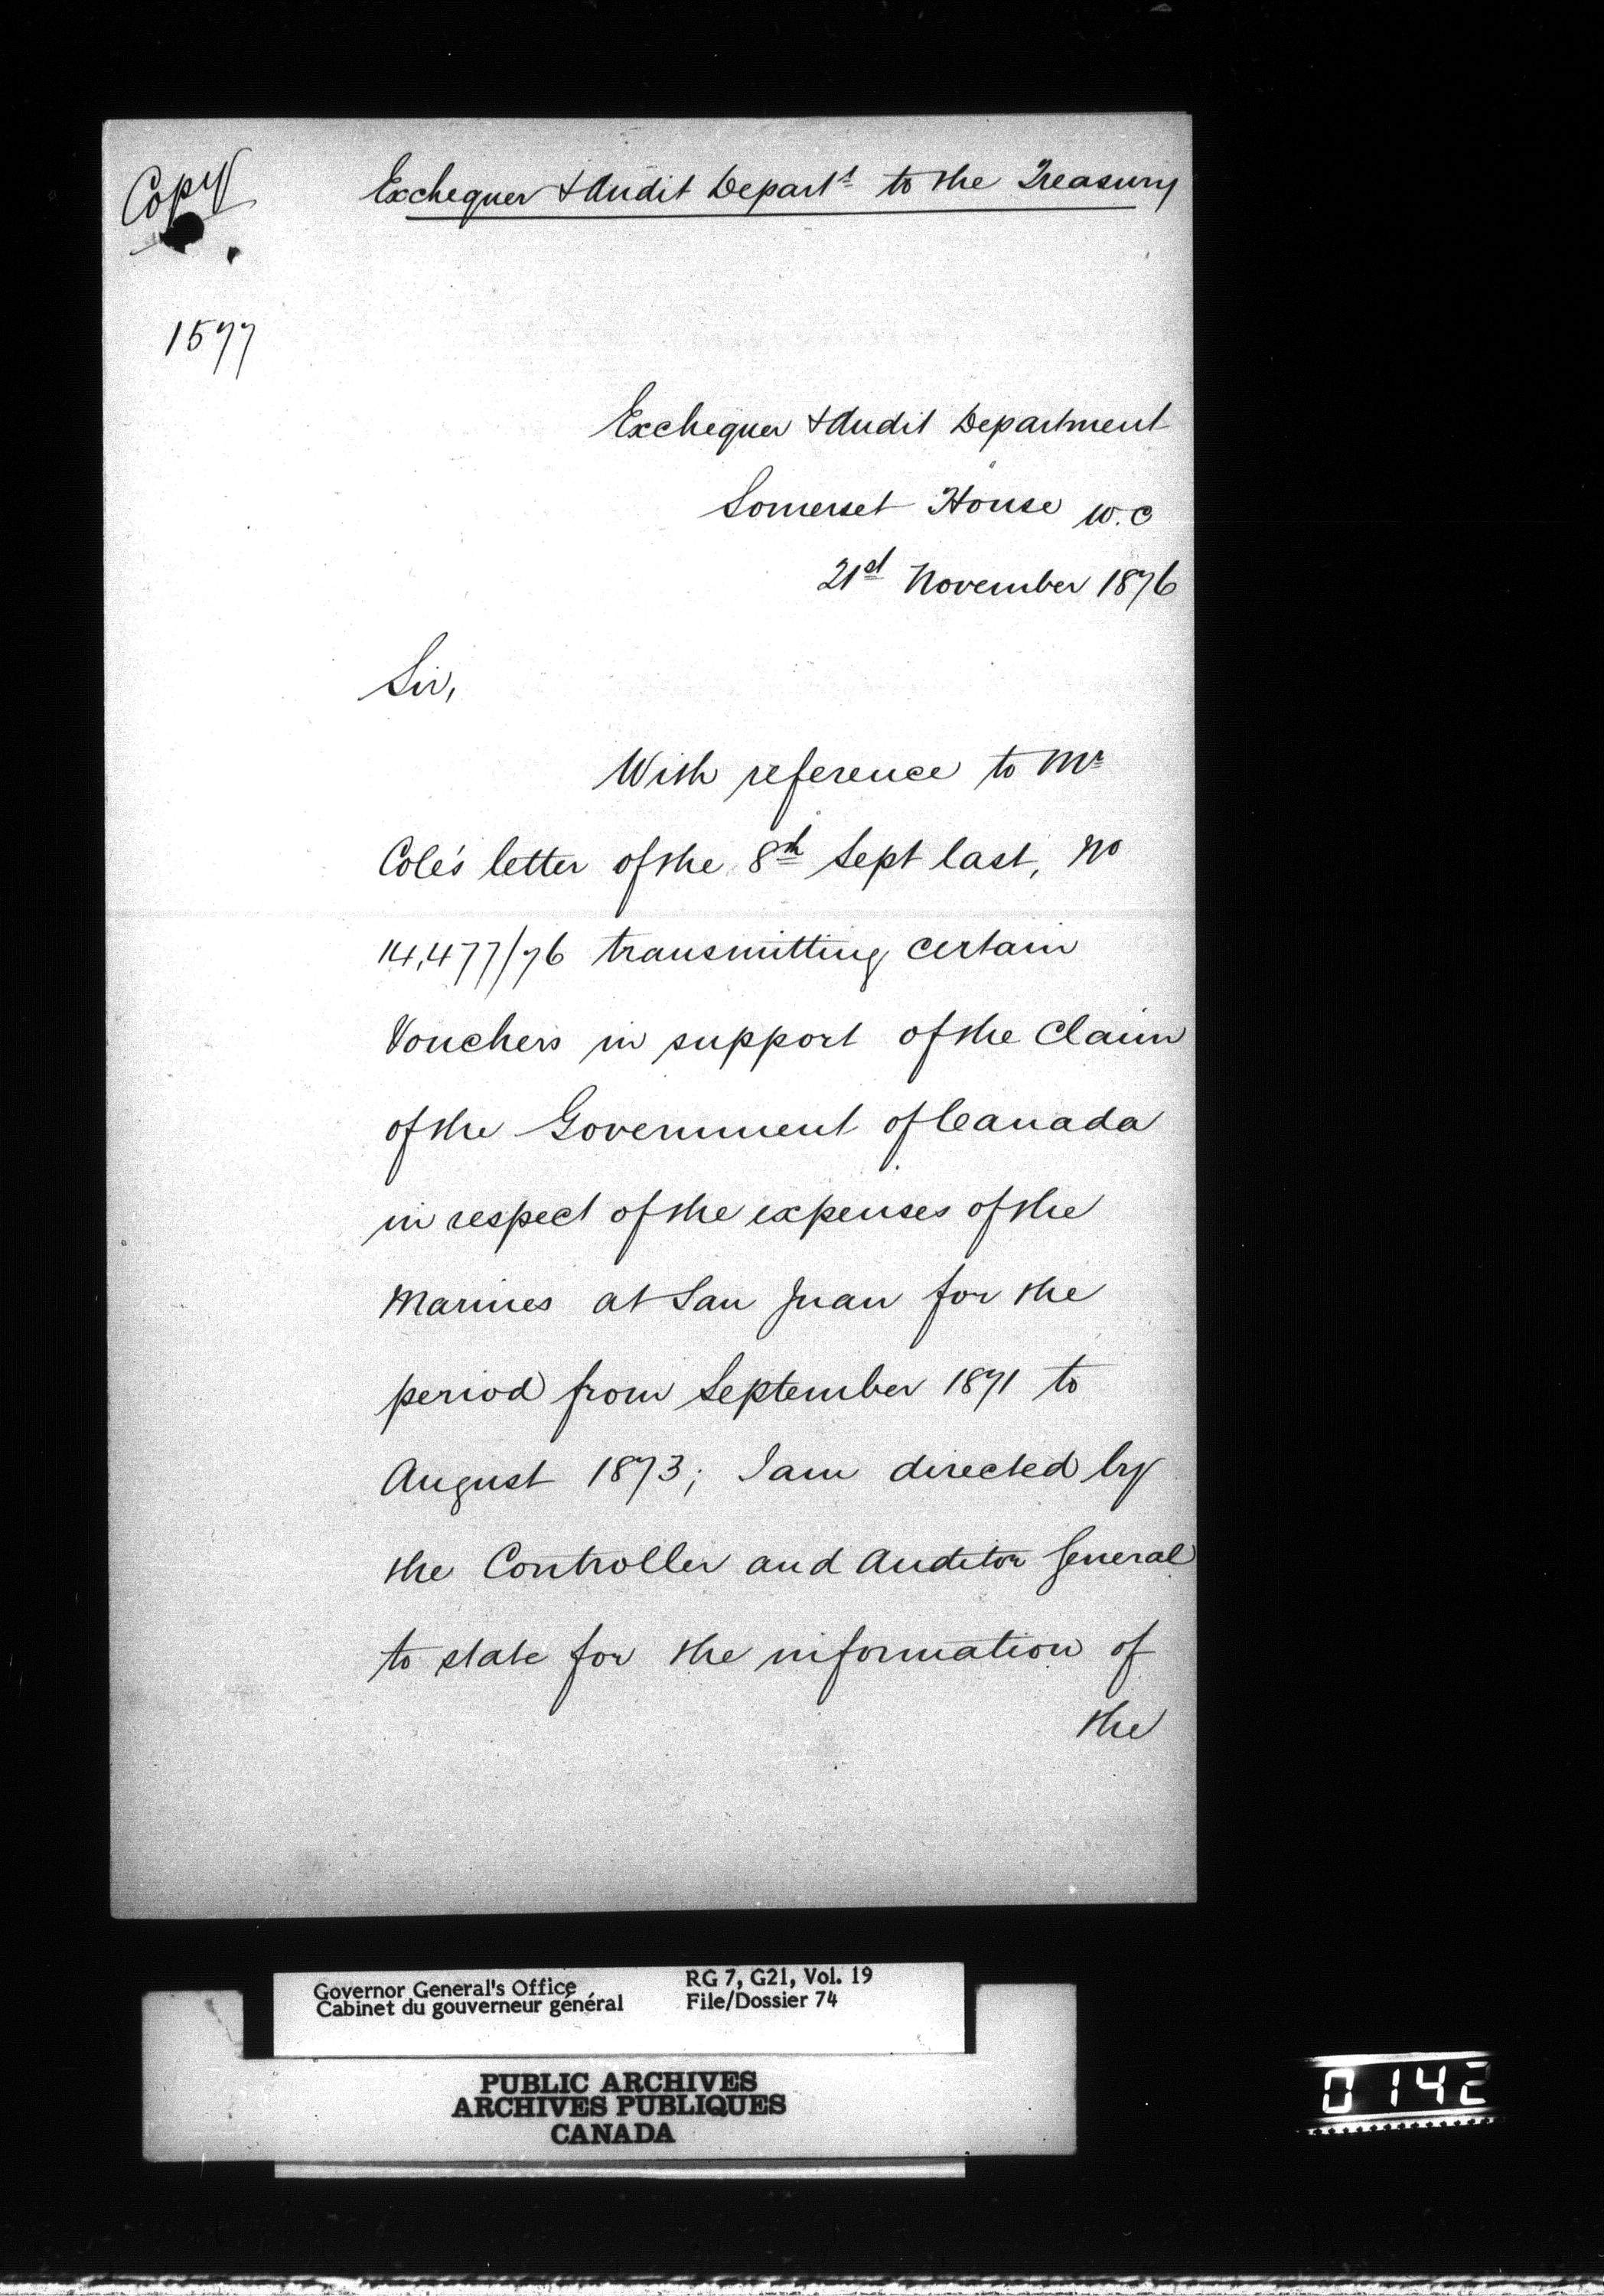 Copy
Exchequer & Audit Depart^t to the Treasury
1577
Exchequer & Audit Department
Somerset House W.C
21st November 1876
Sir,
With reference to Mr
Cole's letter of the 8th Sept last, No
14,477/76 transmitting certain
Vouchers in support of the Claim
of the Government of Canada
in respect of the expenses of the
Marines at San Juan for the
period from September 1871 to
August 1873; I am directed by
the Controller and Auditor General
to state for the information of
the
Governor General's Office
Cabinet du gouverneur général
RG 7, G21, Vol. 19
File/Dossier 74
PUBLIC ARCHIVES
ARCHIVES PUBLIQUES
CANADA
0142